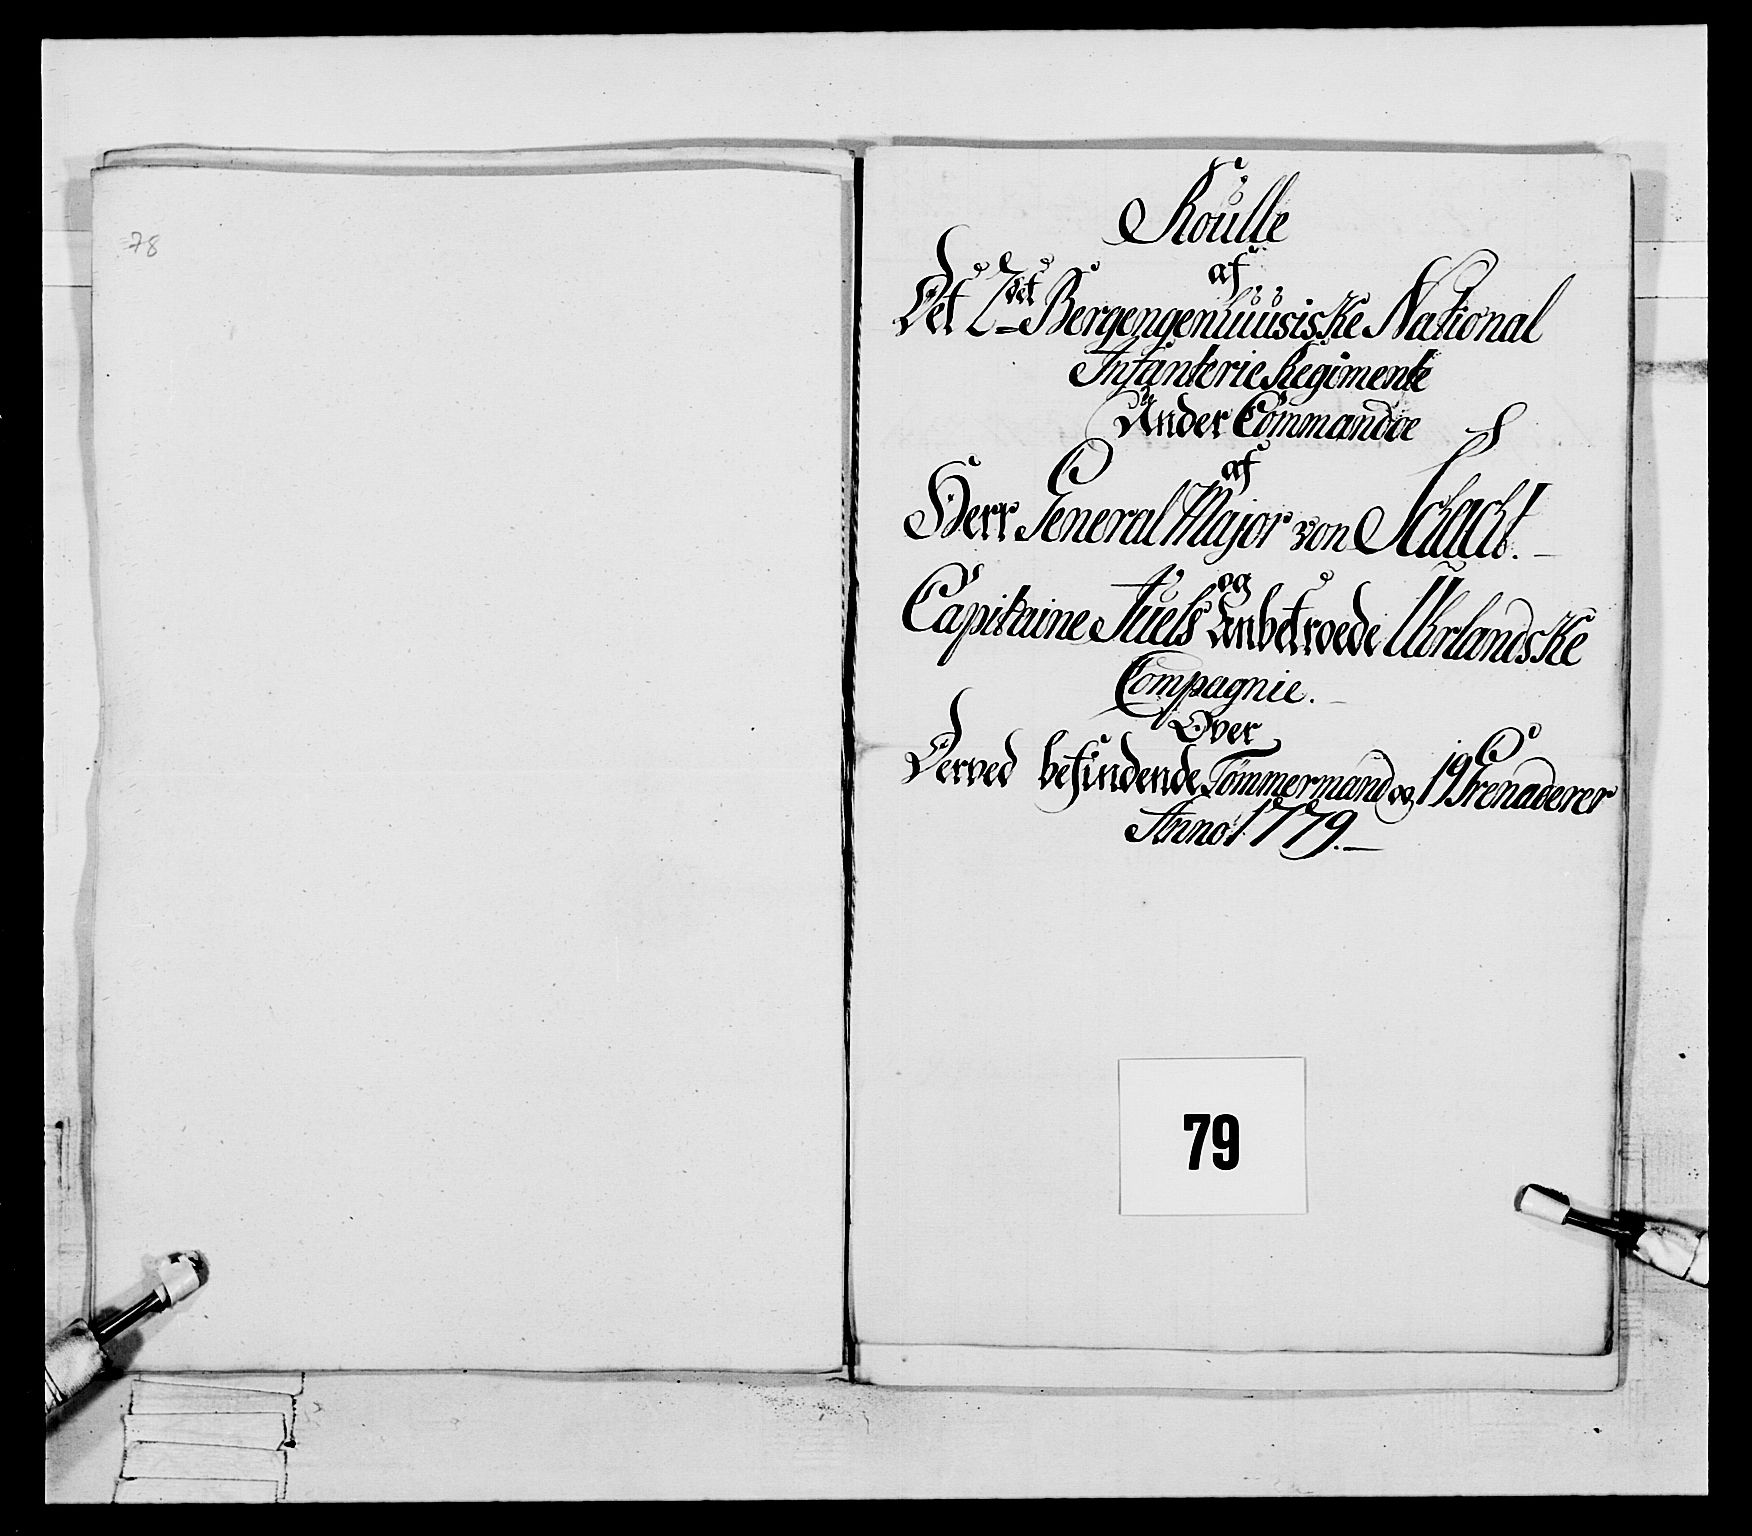 78
Roulle
af
Det 2det Bergengenhuusiske National
Infanterie Regimente
Under Commandoe
af
Herr General Major von Schacht.
og
Capitaine Juels Anbetroede Uhrlandske
Compagnie.
Over
Derved befindende Tömmermand og 19 Grenaderer
Anno 1779.
79